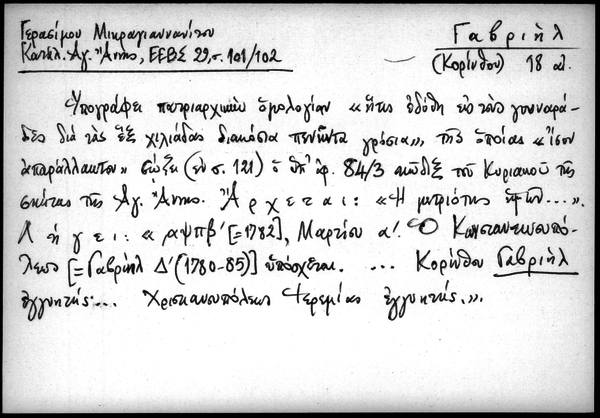 Γερασίμου Μικραγιαννανίτου
Γαβριὴλ
Κατάλ. Ἁγ. Ἄννης, ΕΕΒΣ 29, σ. 101/102
(Κορίνθου) 18 αἰ.
Ὑπογράφει πατριαρχικὴν ὁμολογίαν «ἥτις ἐδόθη εἰς τοὺς γουναρά-
δες διὰ τὰς ἓξ χιλιάδας διακόσια πενῆντα γρόσια», τῆς ὁποίας «ἴσον
ἀπαράλλακτον» σῴζει (ἐν σ. 121) ὁ ὑπ' ἀρ. 84/3 κῶδιξ τοῦ Κυριακοῦ τῆς
σκήτης τῆς Ἁγ. Ἄννης. Ἄρχεται: «Ἡ μετριότης ἡμῶν...».
Λήγει: «αψπβ' [=1782], Μαρτίου α'. Ὁ Κωνσταντινουπό-
λεως [=Γαβριὴλ Δ' (1780-85)] ὑπόσχεται. ... Κορίνθου Γαβριὴλ
ἐγγυητής... Χριστιανουπόλεως Ἱερεμίας ἐγγυητής.».